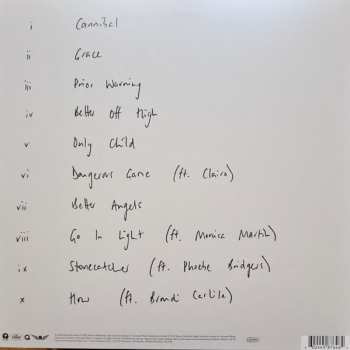 i Cannibal
ii Grace
iii Prior Warning
iv Better Off High
v Only Child
vi Dangerous Game (ft. Clairo)
vii Better Angels
viii Go In Light (ft. Monica Martin)
ix Stonecatcher (ft. Phoebe Bridgers)
x How (ft. Brandi Carlile)